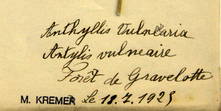 Anthyllis Vulneraria
Antylis vulneaire
Forêt de Gravelotte
M. KREMER Le 18.7.1925